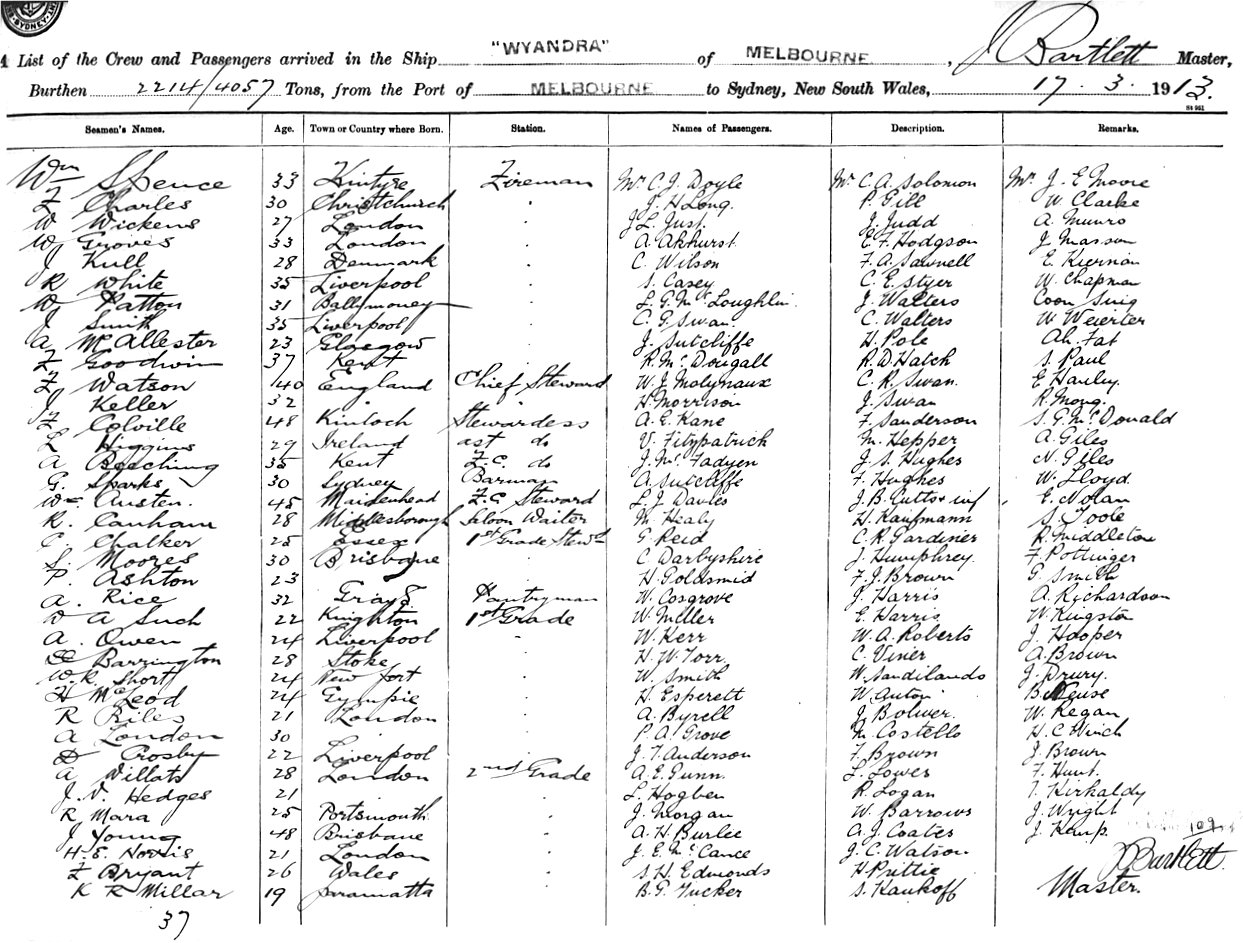 SYDNEY
List of the Crew and Passengers arrived in the Ship "WYANDRA" of MELBOURNE, J Bartlett Master,
Burthen 2214/4057 Tons, from the Port of MELBOURNE to Sydney, New South Wales, 17. 3. 1913.
Seamen's Names. Age. Town or Country where Born. Station. Names of Passengers. Description. Remarks.
Wm Spence 33 Kintyre Fireman Mr C. J. Doyle Mr C. A. Solomon Mr J. E Moore
F Charles 30 Christchurch " J. H Long. P. Gill W. Clarke
W Wickens 27 London " J L. Just. J. Judd A. Munro
W Groves 33 London " A. Akhurst. E. F. Hodgson J. Masson
J Kull 28 Denmark " C. Wilson F. A. Sawell E. Kiernan
R White 35 Liverpool " S. Casey C. E. Styer W. Chapman
W Patton 31 Ballymoney " L. G. McLoughlin. J. Walters Coon Sing
J Smith 35 Liverpool " C. G. Swan. C. Walters W. Weierter
A McAllester 23 Glasgow " J. Sutcliffe H. Pole Ah. Fat
F Goodwin 37 Kent " R. McDougall R. D. Hatch S. Paul
F Watson 40 England Chief Steward W. J. Molynaux C. R. Swan. E Hanley.
J Keller 32 " " H. Morrison J. Swan R. Mong.
F Colville 48 Kinloch Stewardess A. E. Kane F. Sanderson S. G. McDonald
L Higgins 29 Ireland ast do V. Fitzpatrick M. Hepper A. Giles
A Beeching 35 Kent F. C. do J. McFadyen J. S. Hughes N. Giles
G. Sparks 30 Sydney Barman A. Sutcliffe F. Hughes W. Lloyd.
Wm Austen. 45 Maidenhead F. C Steward L. J. Davies J. B. Cutts + inf E. Nolan
R. Canham 28 Middlesborough Saloon Waiter M. Healy H. Kaufmann S. Toole
C Chalker 25 Essex 1st Grade Stewd G Reid C. R. Gardiner R. Middleton
S. Moores 30 Brisbane " C Darbyshire J. Humphrey. F. Pottinger
P. Ashton 23 " H. Goldsmid F. J. Brown G. Smith
A. Rice 32 Grays Pantryman W. Cosgrove J. Harris A. Richardson
W A Such 22 Knighton 1st Grade W. Miller E. Harris W. Kingston
A. Owen 24 Liverpool " W. Kerr W. A. Roberts J. Hooper
Barrington 28 Stoke " H. W. Torr. C. Viner A. Brown
W. R. Short 24 New port " W. Smith W. Sandilands J. Drury.
H McLeod 24 Gympie " H. Esperett W. Anton B. Neuse
R Riles 21 London " A. Byrell J. Boliver. W. Regan
A London 30 " " P. A. Grove M. Costello H. C. Winch
D Crosby 22 Liverpool " J. T. Anderson F. Brown J. Brown
A Willats 28 London 2nd Grade A. E. Gunn. L. Lower F. Hunt.
J. V. Hedges 21 " " L. Hogben R. Logan T. Kirkaldy
R Mara 25 Portsmouth " J. Morgan W. Barrows J. Wright
J Young 48 Brisbane " A. H. Burlee A. J. Coates J. Kemp. 109
H. E. Norris 21 London " J. E. McCance J. C. Watson J Bartlett.
F Bryant 26 Wales " S. H. Edmonds H Puttie Master.
K R Millar 19 Paramatta " B. G. Tucker S. Kaukoff
37